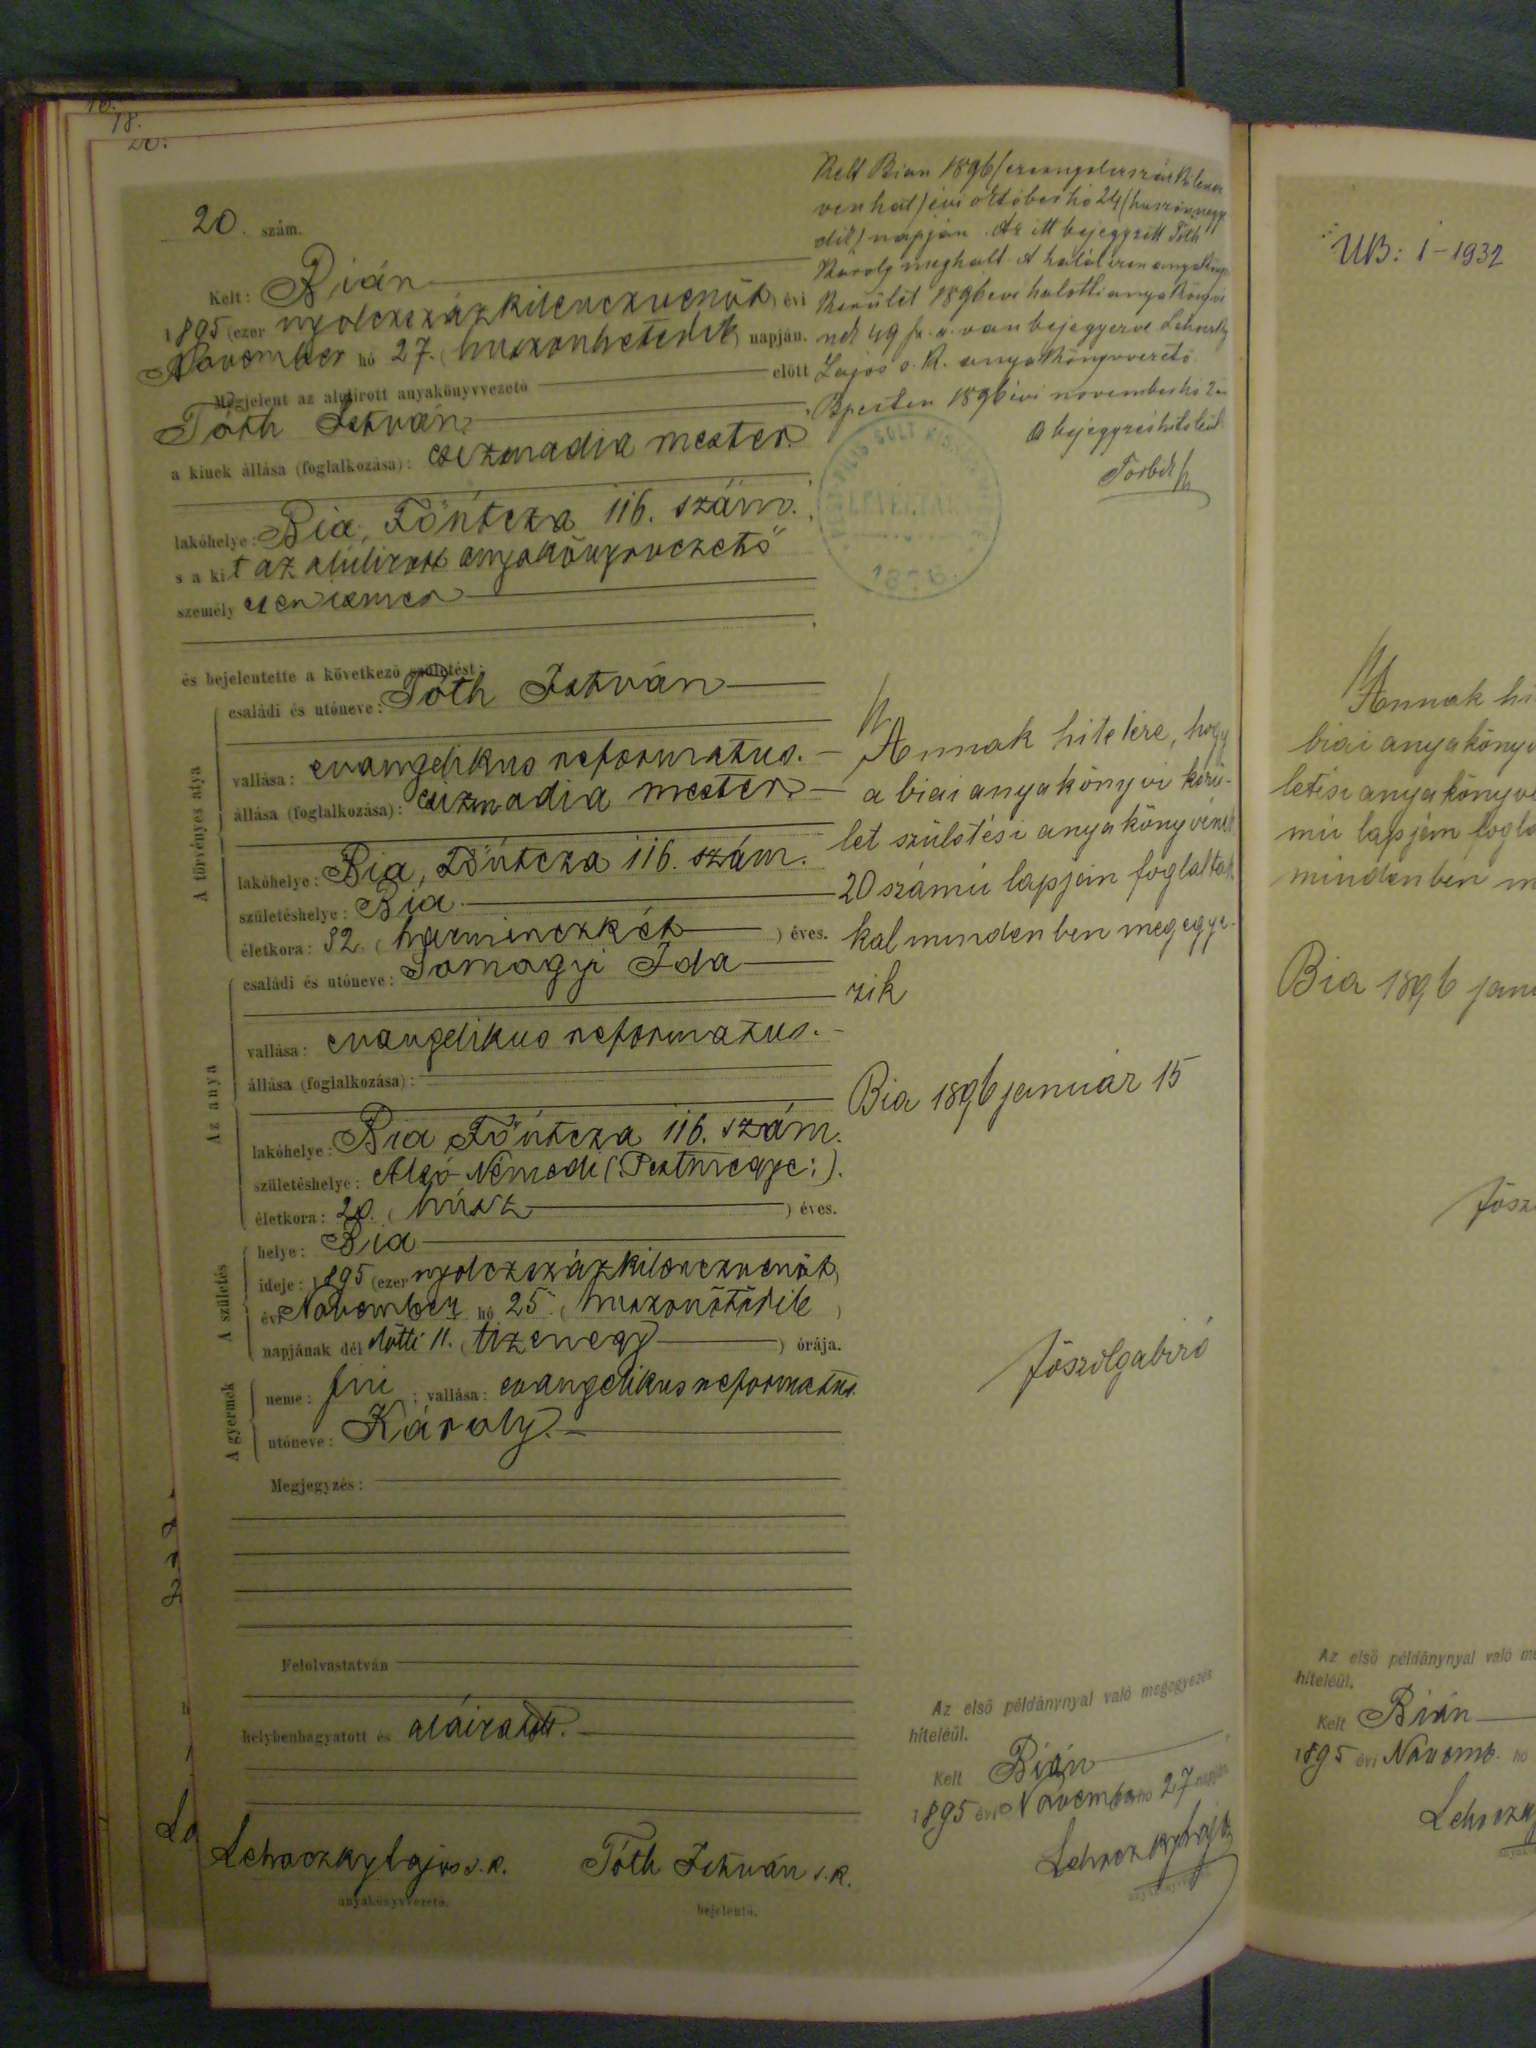 16.
18.
20.
20. szám.
Kelt: Bián
1895 (ezer nyolczszázkilenczvenöt) évi
November hó 27. (huszonhetedik) napján.
Megjelent az alulirott anyakönyvvezető előtt
Tóth István
a kinek állása (foglalkozása): csizmadia mester
lakóhelye: Bia, Főútcza 116. szám.
s a kit az alulirott anyakönyvvezető
személyesen ismer
és bejelentette a következő születést:
A törvényes atya
családi és utóneve: Tóth István
vallása: evangelikus reformatus.
állása (foglalkozása): csizmadia mester
lakóhelye: Bia, Főútcza 116. szám.
születéshelye: Bia
életkora: 32. (harminczkét) éves.
Az anya
családi és utóneve: Somogyi Ida
vallása: evangelikus reformatus.
állása (foglalkozása):
lakóhelye: Bia Főútcza 116. szám.
születéshelye: Alsó Némedi (:Pestmegye:).
életkora: 20. (húsz) éves.
A születés
helye: Bia
ideje: 1895 (ezer nyolczszázkilenczvenöt)
évi November hó 25. (huszonötödik)
napjának dél előtti 11. (tizenegy) órája.
A gyermek
neme: fiu; vallása: evangelikus reformatus.
utóneve: Károly.
Megjegyzés:
Felolvastatván
helybenhagyatott és aláiratott.
Lehoczky Lajos s.k. Tóth István s.k.
anyakönyvvezető. bejelentő.
Kelt Bian 1896 (ezernyolczszázkilencz
venhat) évi október hó 24 (huszonnegye
dik) napján. Az itt bejegyzett Tóth
Károly meghalt. A haláleset anyakönyv
kerület 1896 évi halotti anyakönyvé
nek 49 f. a. van bejegyezve Lehoczky
Lajos s. k. anyakönyvvezető
Bpesten 1896 évi november hó
A bejegyzés hiteléül
1876.
Annak hitelére, hogy
a biai anyakönyvi kerü-
let születési anyakönyvének
20 számú lapján foglaltak
kal mindenben megegye-
zik
Bia 1896 január 15
főszolgabiró
Az első példánynyal való megegyezés
hiteléül.
Kelt Bián
1895 évi November hó 27 napján
Lehoczky Lajos
anyakönyvvezető
UB: I-1932
Annak hi
biai anyakönyv
letési anyakönyvé
mú lapján fogla
mindenben m
Bia 1896 janu
fősz
Az első példánynyal való me
hiteléül.
Kelt Bián
1895 évi Novemb. hó
Lehoczky